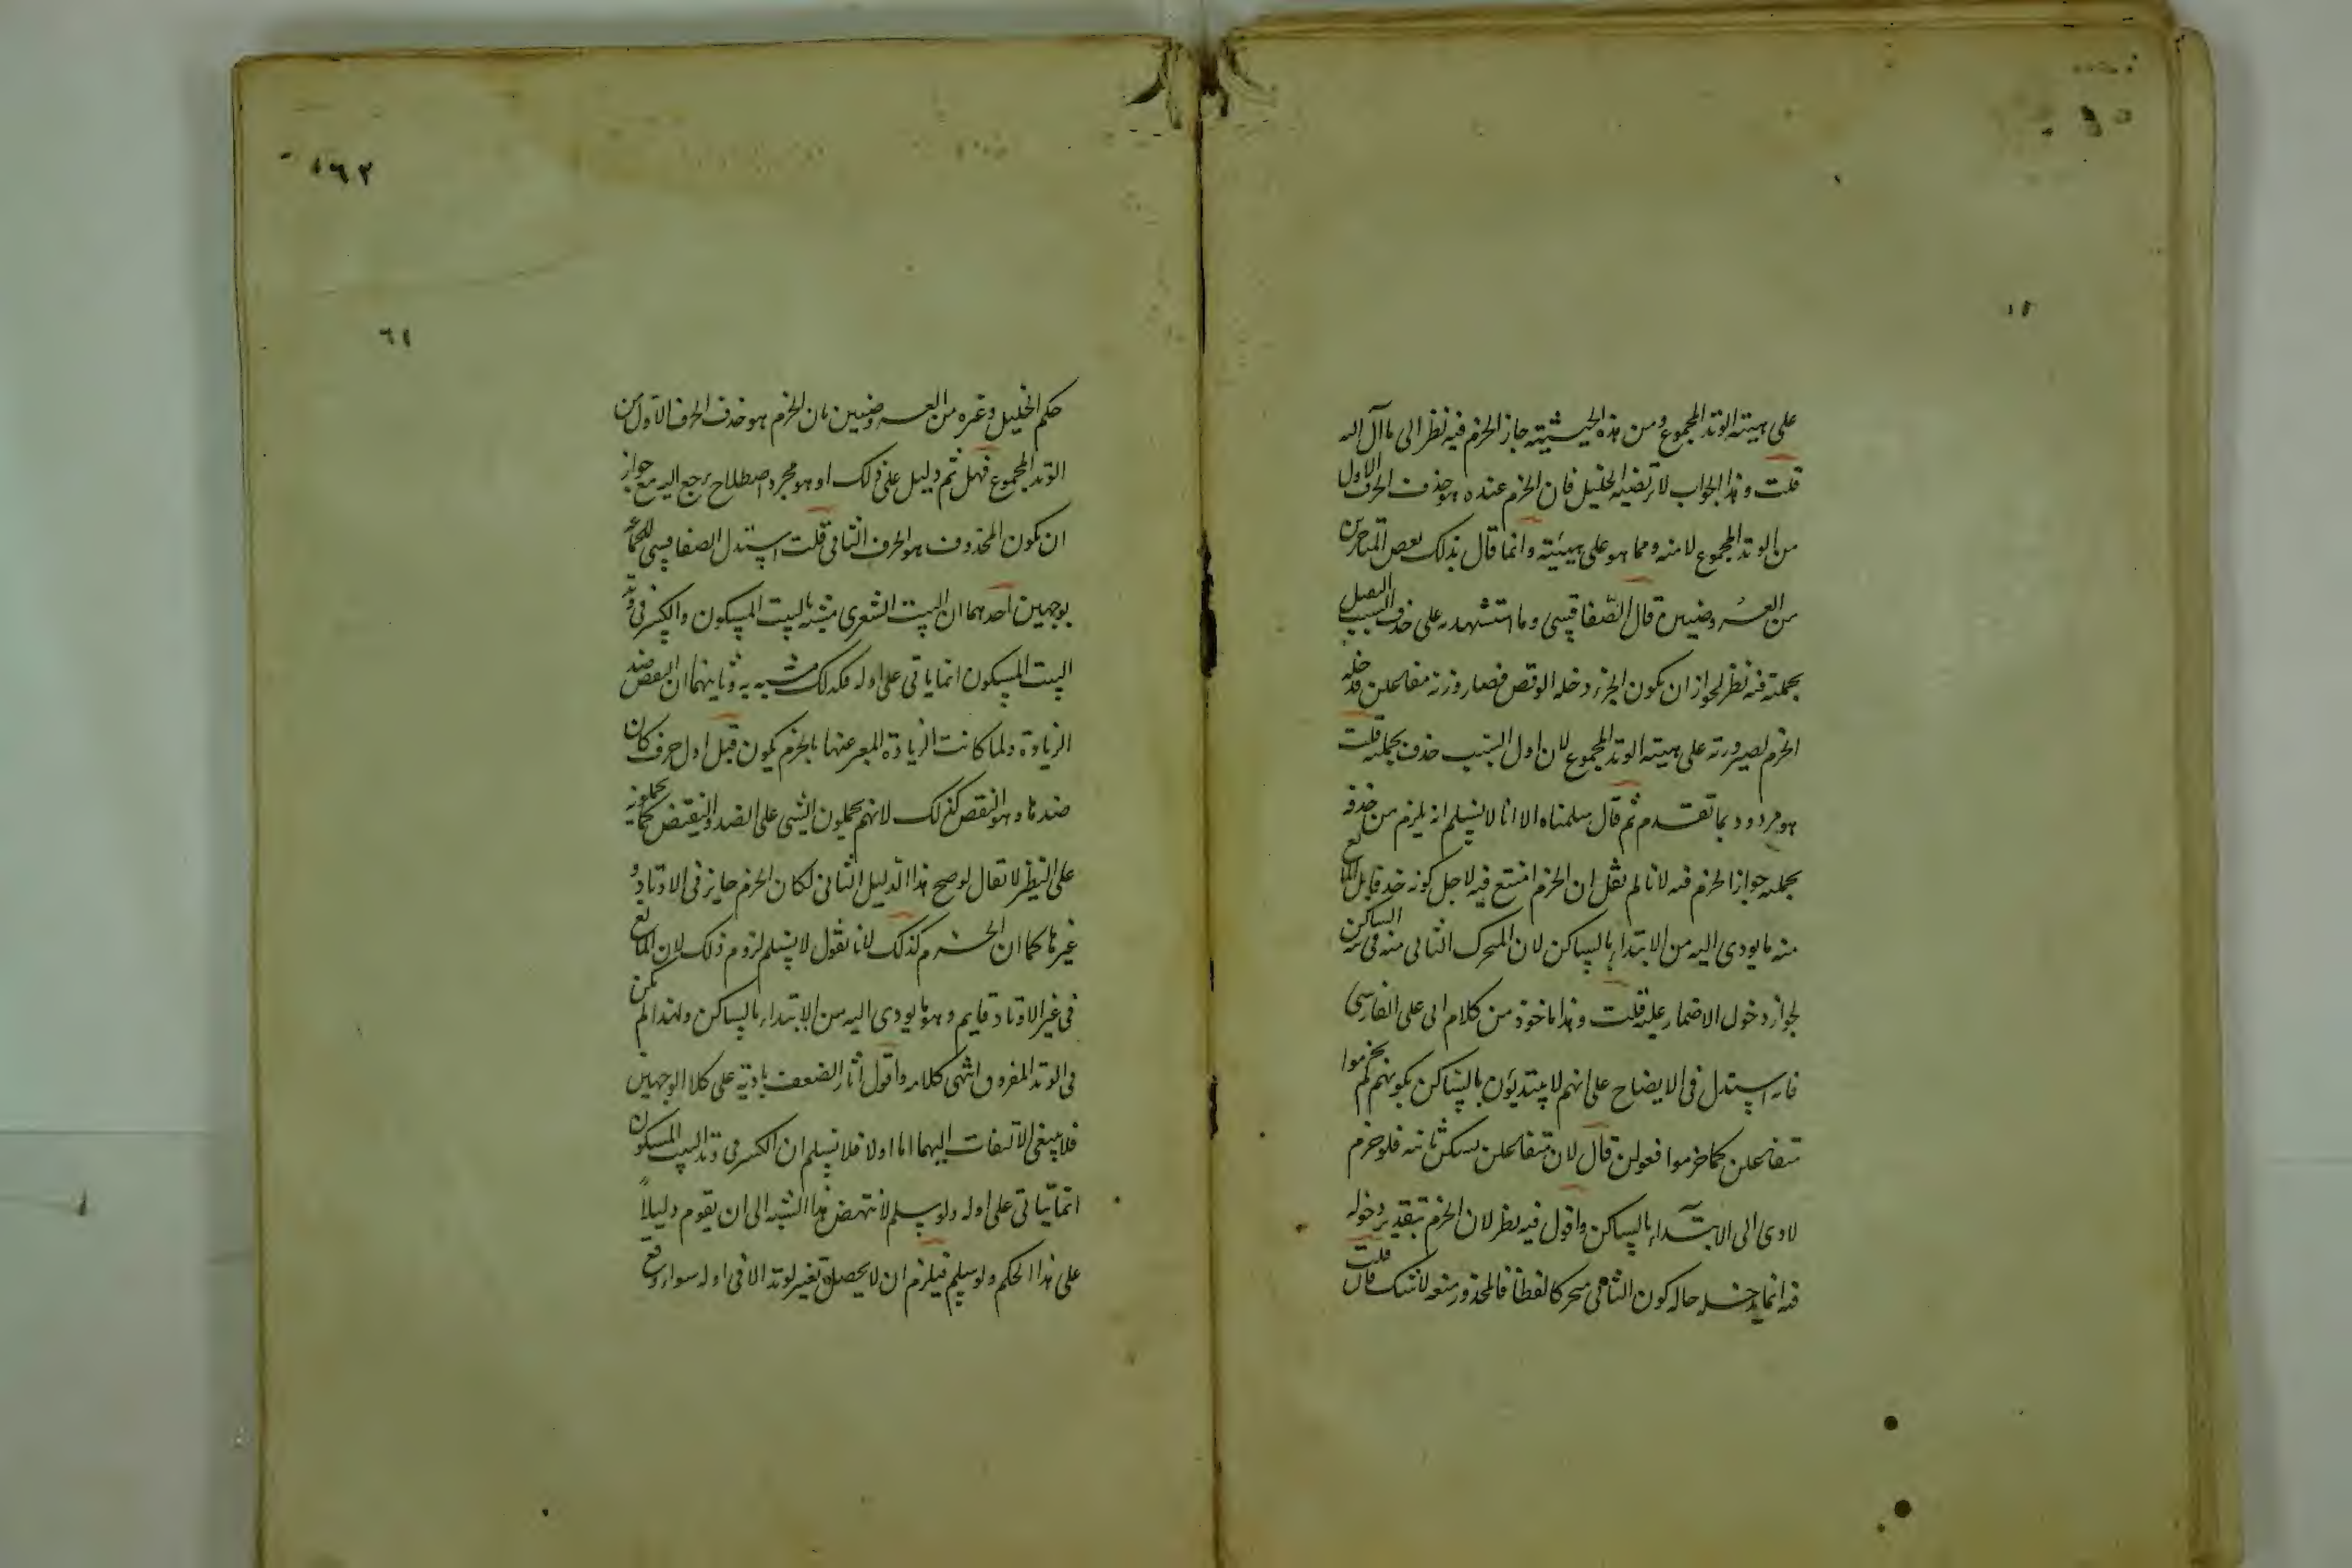 على هيئة الوتد المجموع ومن هذه الحيثية جاز الخرم فيه نظرا الى ما آل اليه
قلت وهذا الجواب لا يرتضيه الخليل فان الخرم عنده هو حذف الحرف الاول
من الوتد المجموع لا منه ومما هو على هيئته وانما قال بذلك بعض المتأخرين
من العروضيين قال الصفاقسي وما استشهد به على حذف السبب الثقيل
بجملته فيه نظر لجواز ان يكون الجزء دخله الوقص فصار وزنه مفاعلن فدخله
الخرم لصيرورته على هيئة الوتد المجموع لا ان اول السبب حذف بجملته قلت
هو مردود بما تقدم ثم قال سلمناه الا انا لا نسلم انه يلزم من حذفه
بجملته جواز الخرم فيه لانا لم نقل ان الخرم امتنع فيه لاجل كونه بل المانع
منه ما يودى اليه من الابتداء بالساكن لان المتحرك الثانى منه فى نية الساكن
لجواز دخول الاضمار عليه قلت وهذا ماخوذ من كلام ابى على الفارسى
فانه استدل فى الايضاح على انهم لا يبتديون بالساكن بكونهم لم يخرموا
متفاعلن كما خرموا فعولن قال لان متفاعلن يسكن ثانيه فلو خرم
لادى الى الابتداء بالساكن واقول فيه نظر لان الخرم بتقدير دخوله
فيه انما يدخله حالة كون الثانى متحركا لفظا فالمحذور منعه لا شك فان قلت
١٦٢
٦١
حكم الخليل وغيره من العروضيين بان الخرم هو حذف الحرف الاول من
الوتد المجموع فهل ثم دليل على ذلك او هو مجرد اصطلاح يرجع اليه مع جواز
ان يكون المحذوف هو الحرف الثانى قلت استدل الصفاقسى للجماعة
بوجهين احدهما ان البيت الشعرى مشبه بالبيت المسكون والكسر فى وتد
البيت المسكون انما ياتى على اوله فكذلك مشبه به وثانيهما ان النقص ضد
الزيادة ولما كانت الزيادة المعبر عنها بالخزم يكون قبل اول حرف كان
ضدها وهو النقص كذلك لانهم يحملون الشى على الضد والنقيض كما يحملونه
على النظير لا يقال لو صح هذا الدليل الثانى لكان الخرم جايز فى الاوتاد و
غيرها كما ان الخزم كذلك لانا نقول لا نسلم لزوم ذلك لان المانع
فى غير الاوتاد قايم وهو ما يودى اليه من الابتداء بالساكن ولهذا لم يكن
فى الوتد المفروق انتهى كلامه واقول اثار الضعف بادية على كلا الوجهين
فلا ينبغى الالتفات اليهما اما اولا فلا نسلم ان الكسر فى وتد البيت المسكون
انما ياتى على اوله ولو سلم لا ينهض هذا الشبه الى ان يقوم دليلاً
على هذا الحكم ولو سلم فيلزم ان لا يحصل تغير لوتد الا فى اوله سواء وقع